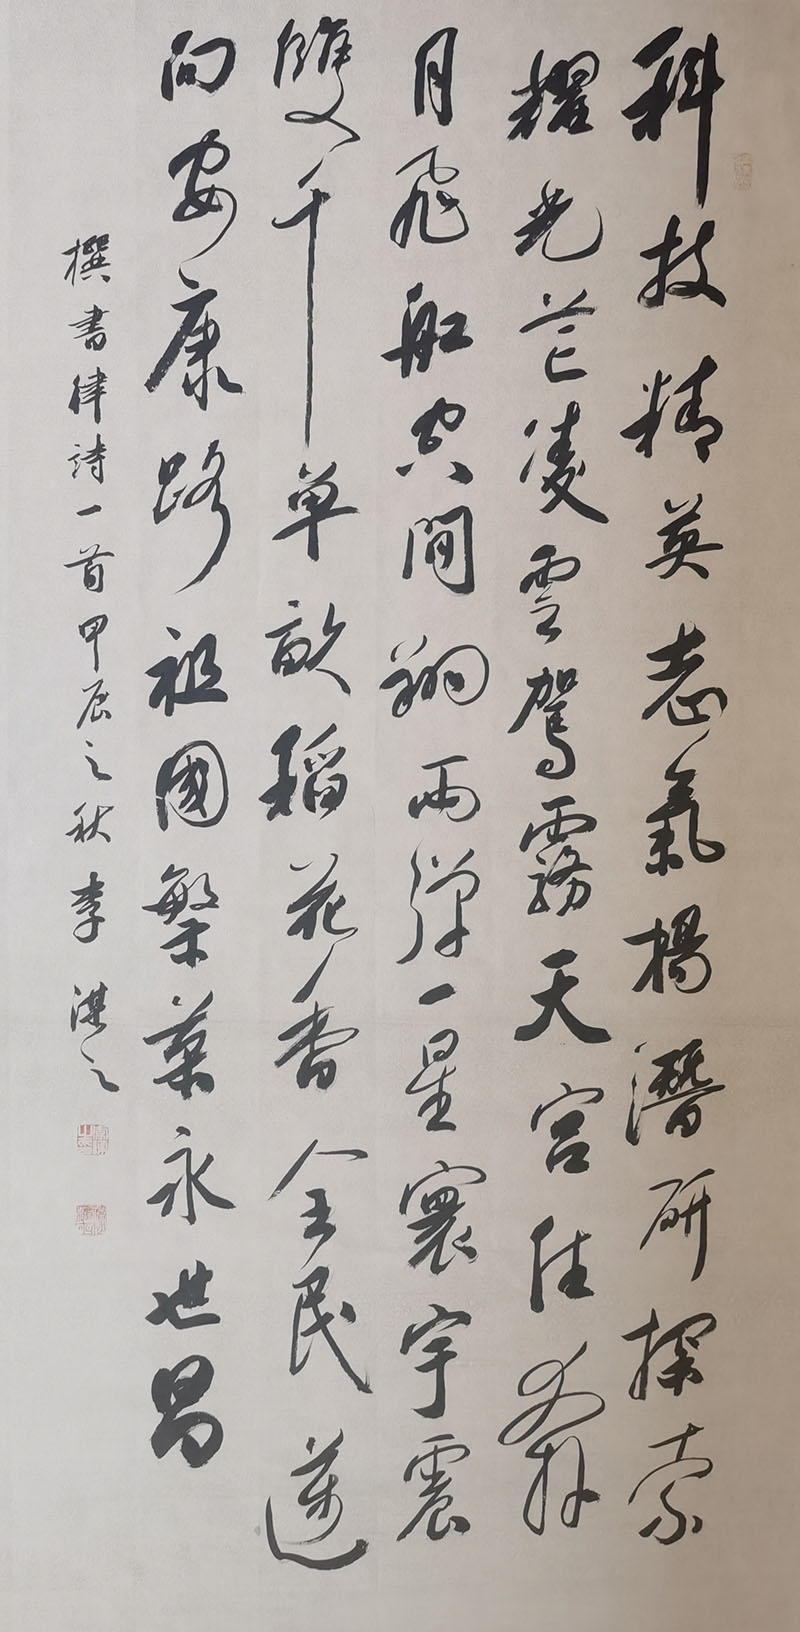 科技精英志氣揚潛研探索
耀光芒凌雲駕霧天宮住奔
月飛船空間翔兩彈一星寰宇震
雙千單畝稻花香全民邁
向安康路祖國繁榮永世昌
撰書律詩一首甲辰之秋李湛之